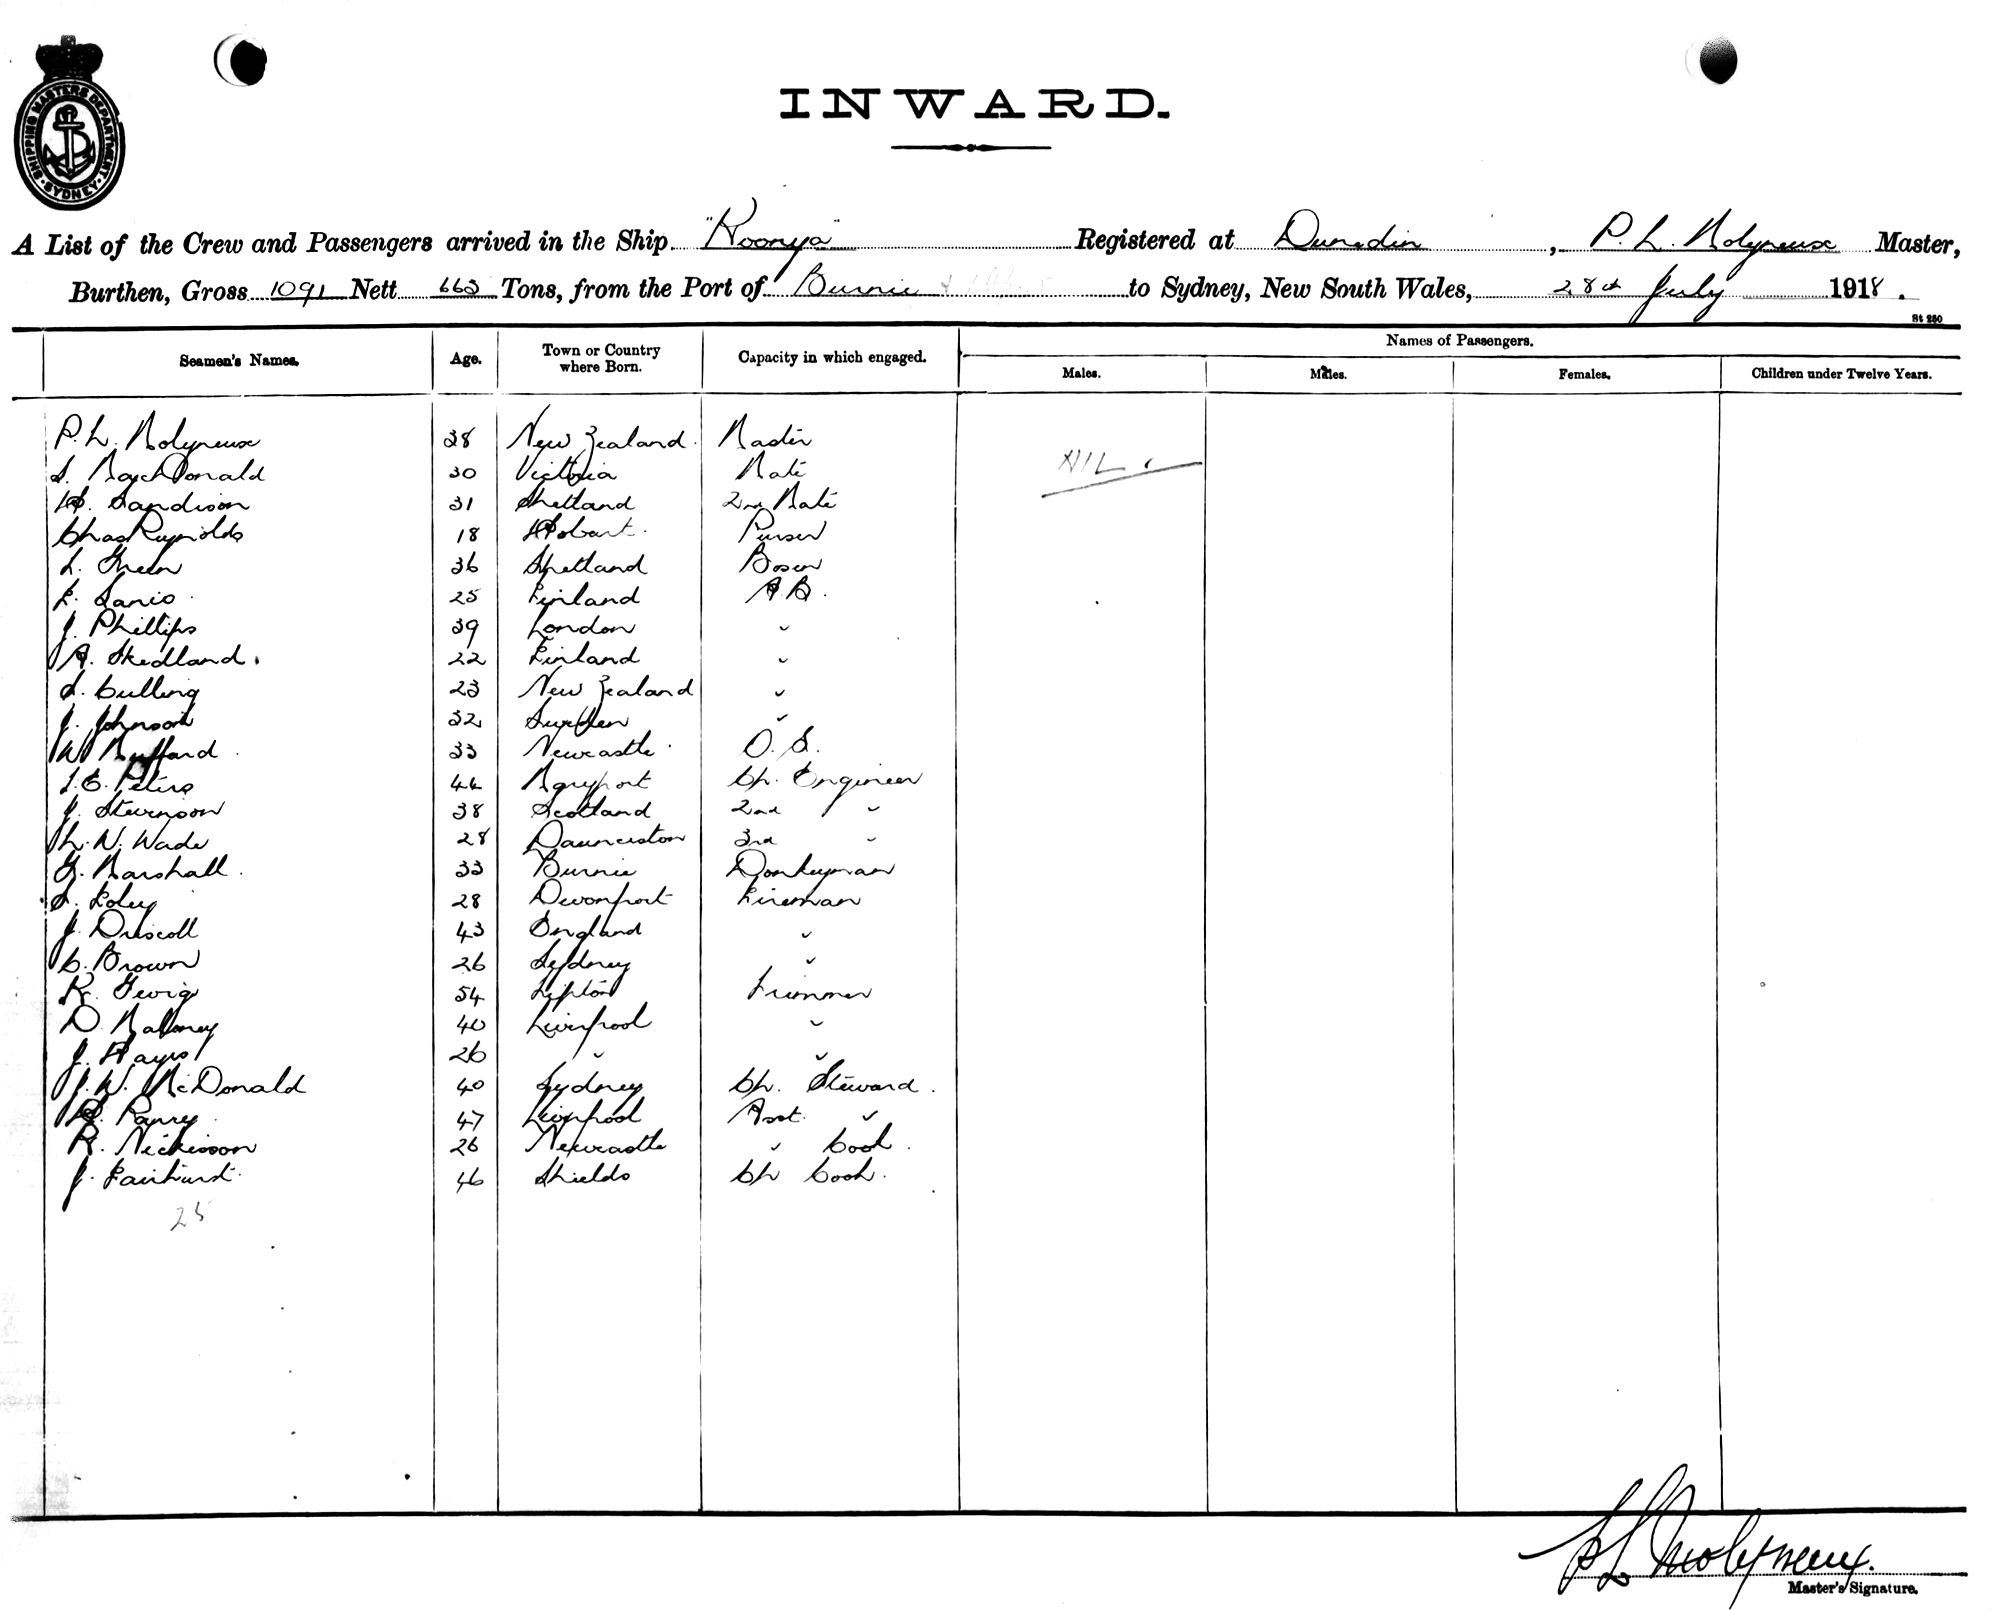 SHIPPING MASTERS DEPARTMENT
SYDNEY
INWARD.
A List of the Crew and Passengers arrived in the Ship "Koonya" Registered at Dunedin, P. L. Molyneux Master,
Burthen, Gross 1091 Nett 663 Tons, from the Port of Burnie to Sydney, New South Wales, 28th July 1918.
St 250
Seamen's Names. Age. Town or Country where Born. Capacity in which engaged. Names of Passengers.
Males. Males. Females. Children under Twelve Years.
P. L. Molyneux 38 New Zealand Master
S. MacDonald 30 Victoria Mate
H. Sandison 31 Shetland 2nd Mate
Chas Reynolds 18 Hobart Purser
L. Green 36 Shetland Bosun
F. 25 Finland A.B.
J. Phillips 39 London "
A. Skedland. 22 Finland "
S. Culling 23 New Zealand "
J. Johnson 32 Sweden "
W 33 Newcastle O.S.
S. E. Peters 44 Maryport Ch. Engineer
J. Stevenson 38 Scotland 2nd "
L. W. Wade 28 Launceston 3rd "
G. Marshall 33 Burnie Donkeyman
S. Foley 28 Devonport Fireman
J. Driscoll 43 England "
C. Brown 26 Sydney "
K. 54 Trimmer
D. Maloney 40 Liverpool "
J. Hayes 26 " "
J. W. McDonald 40 Sydney Ch. Steward
47 Liverpool Asst. "
R. Nickisson 26 Newcastle " Cook
J. Fairhurst 46 Shields Ch Cook
NIL.
25
P L Molyneux.
Master's Signature.